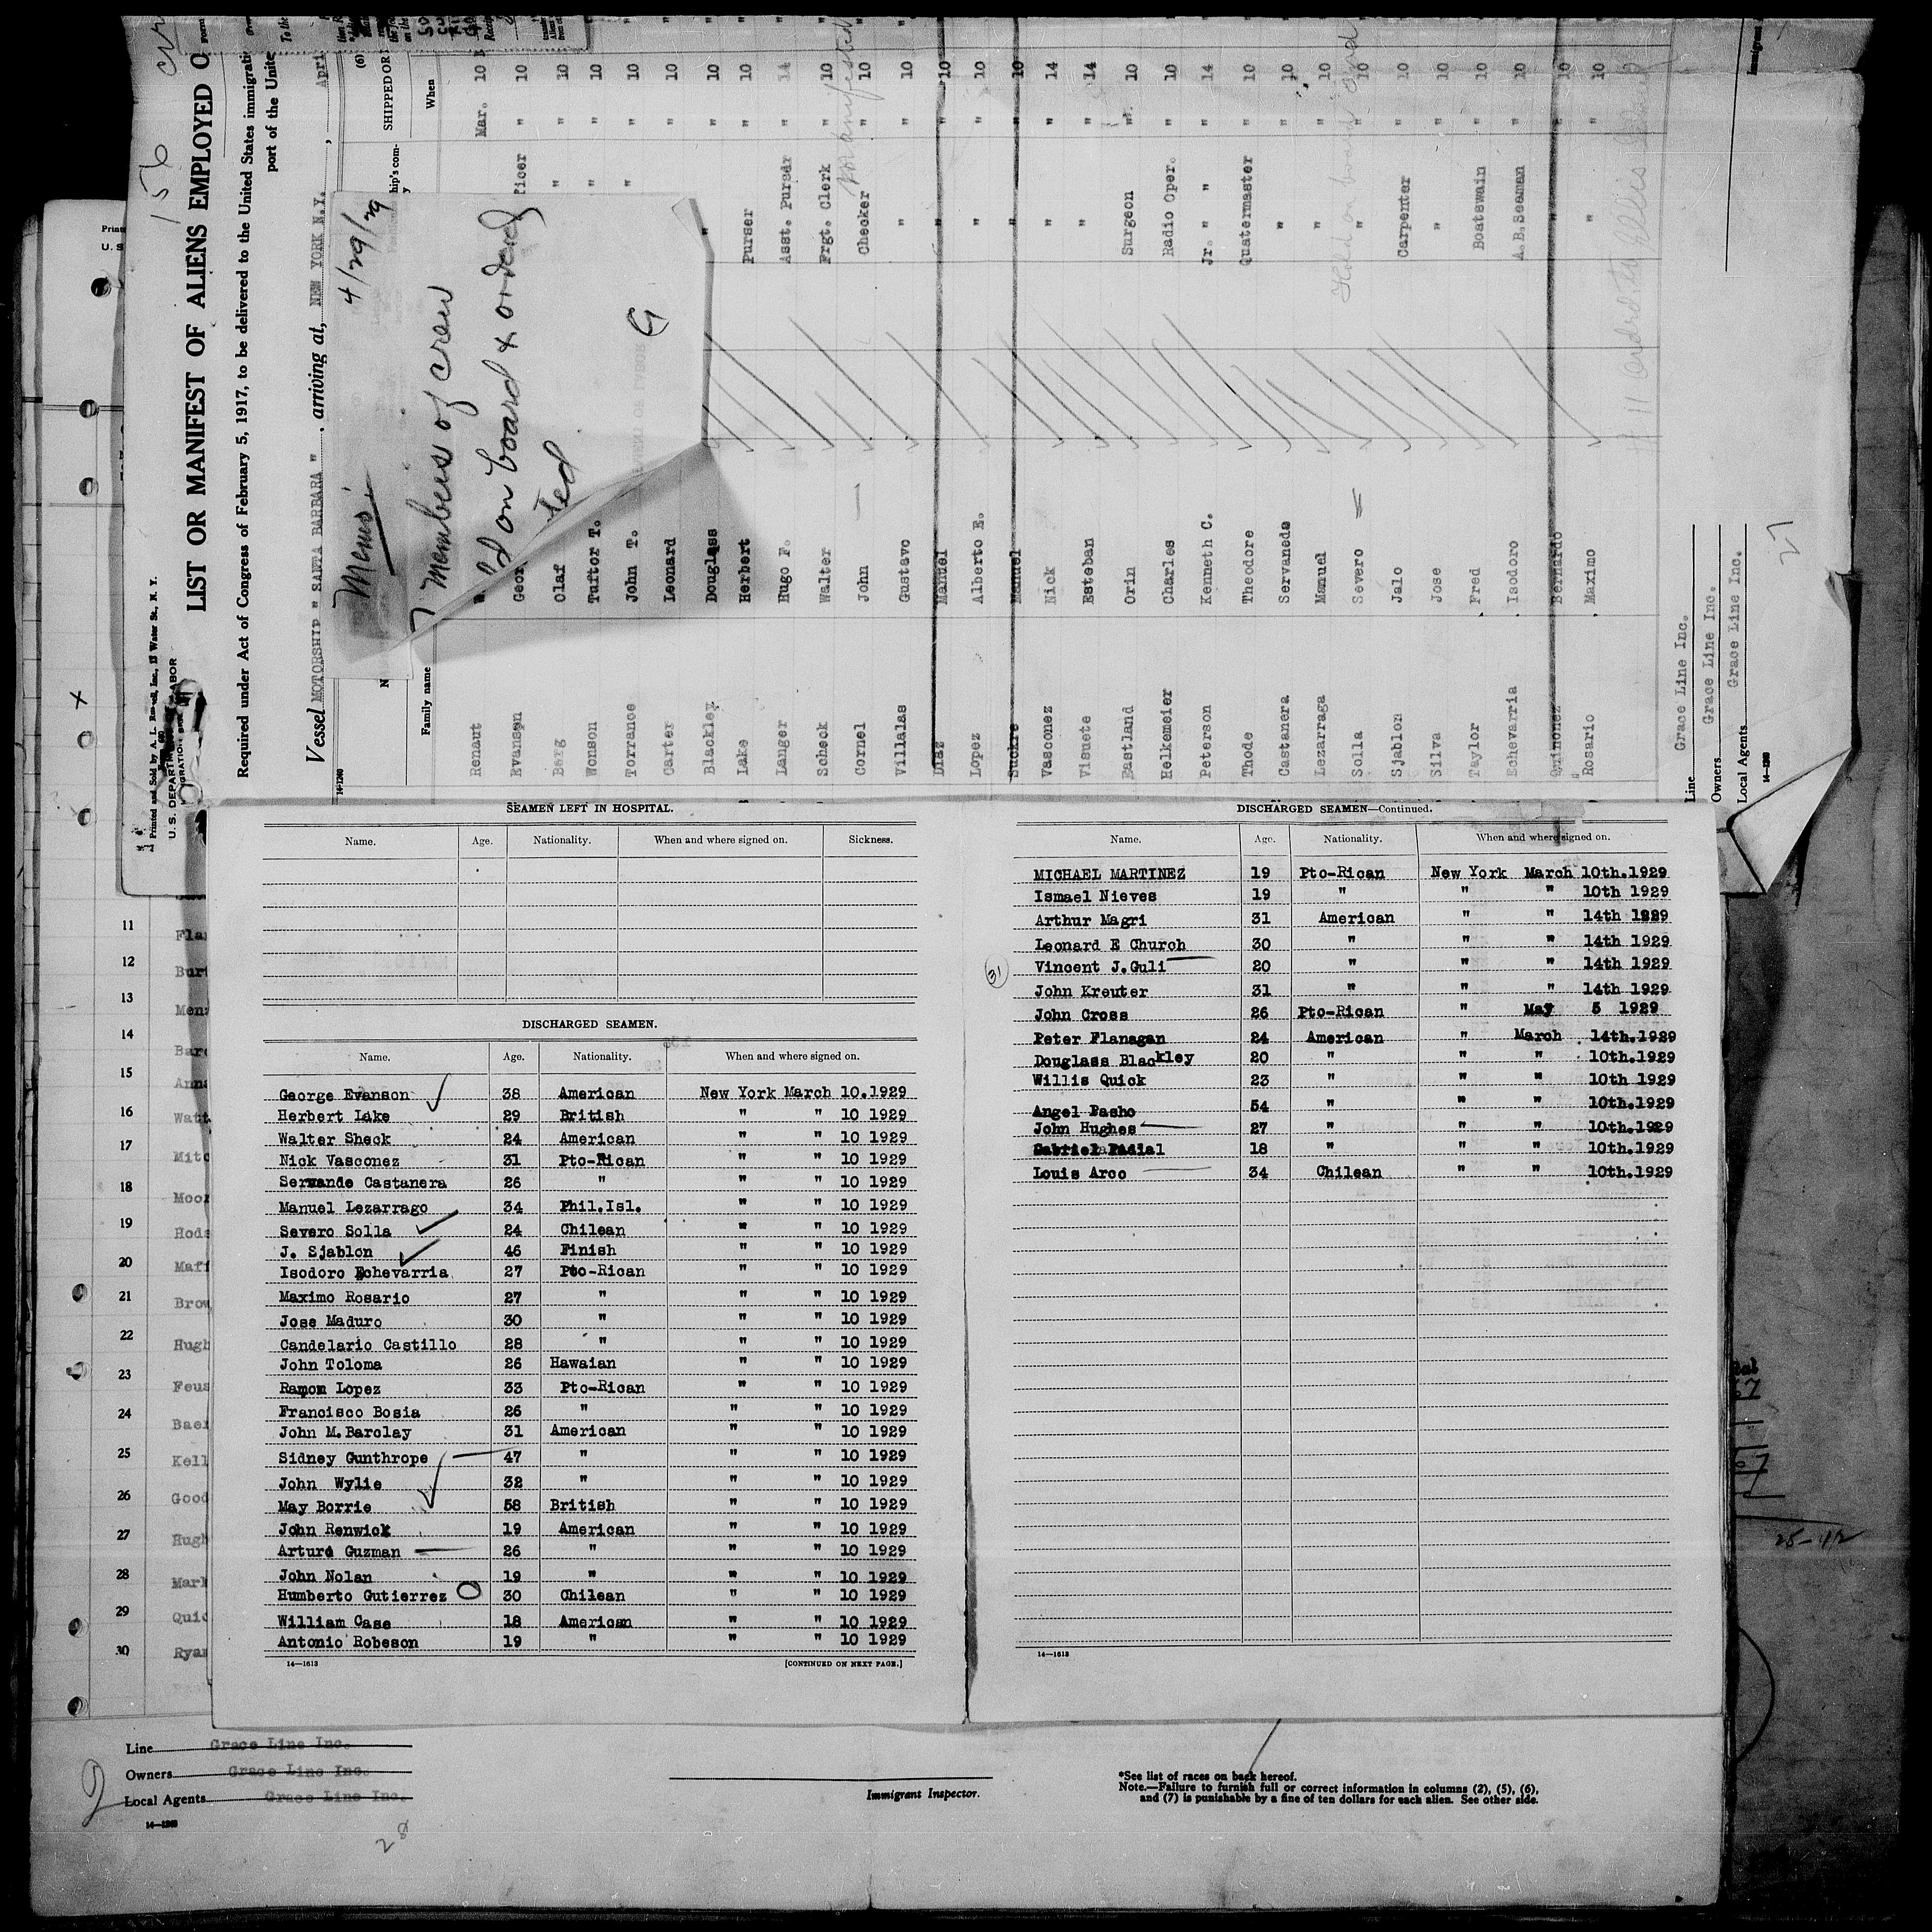 LIST OR MANIFEST OF ALIENS EMPLOYED O
Required under Act of Congress of February 5, 1917, to be delivered to the United States immigrati
port of the Unite
Vessel MOTORSHIP " SANTA BARBARA " , arriving at, NEW YORK N.Y. , Apri
Printed and Sold by A. L. Russell, Inc., 13 Water St., N. Y.
14-1240
156
SHIPPED OR
When
Family name
Memo 4/29/29
7 members of crew
on board & ordered
Renaut Mar. 10
Evansen Geor ficer " 10
Barg Olaf " " 10
Wonson Tuftor T. " " 10
Torrance John T. " " 10
Carter Leonard " 10
Blackley Douglass " " 10
Lake Herbert Purser " 10
Langer Hugo F. Asst. Purser " 14
Scheck Walter Frgt. Clerk " 10
Cornel John Checker " 10
Manifested
Villalas Gustavo " " 10
Diaz Manuel " " 10
Lopez Alberto E. " " 10
Suckre Manuel " " 10
Vasconez Nick " " 14
Visuete Esteban " " 14
Eastland Orin Surgeon " 10
Helkemeier Charles Radio Oper. " 10
Peterson Kenneth C. Jr. " " " 14
Thode Theodore Quatermaster " 10
Castanera Servaneda " " 10
Lezarraga Manuel " " 10
Solla Severo " " 10
Sjablon Jalo Carpenter " 10
Silva Jose " " 10
Taylor Fred Boatswain " 10
Echevarria Isodoro A.B.Seaman " 10
Quinonez Bernardo " " 10
Rosario Maximo " " 10
Line Grace Line Inc.
Owners Grace Line Inc.
Local Agents Grace Line Inc.
27
SEAMEN LEFT IN HOSPITAL.
Name. Age. Nationality. When and where signed on. Sickness.
DISCHARGED SEAMEN.
Name. Age. Nationality. When and where signed on.
George Evanson 38 American New York March 10.1929
Herbert Lake 29 British " " 10 1929
Walter Sheck 24 American " " 10 1929
Nick Vasconez 31 Pto-Rican " " 10 1929
Servande Castanera 26 " " " 10 1929
Manuel Lezarrago 34 Phil.Isl. " " 10 1929
Severo Solla 24 Chilean " " 10 1929
J. Sjablon 46 Finish " " 10 1929
Isodoro Echevarria 27 Pto-Rican " " 10 1929
Maximo Rosario 27 " " " 10 1929
Jose Maduro 30 " " " 10 1929
Candelario Castillo 28 " " " 10 1929
John Toloma 26 Hawaian " " 10 1929
Ramon Lopez 33 Pto-Rican " " 10 1929
Francisco Bosia 26 " " " 10 1929
John M.Barclay 31 American " " 10 1929
Sidney Gunthrope 47 " " " 10 1929
John Wylie 32 " " " 10 1929
May Borrie 58 British " " 10 1929
John Renwick 19 American " " 10 1929
Arturo Guzman 26 " " " 10 1929
John Nolan 19 " " " 10 1929
Humberto Gutierrez 30 Chilean " " 10 1929
William Case 18 American " " 10 1929
Antonio Robeson 19 " " " 10 1929
14—1613 [CONTINUED ON NEXT PAGE.]
DISCHARGED SEAMEN—Continued.
Name. Age. Nationality. When and where signed on.
MICHAEL MARTINEZ 19 Pto-Rican New York March 10th.1929
Ismael Nieves 19 " " " 10th 1929
Arthur Magri 31 American " " 14th 1929
Leonard E Church 30 " " " 14th 1929
Vincent J.Guli 20 " " " 14th 1929
31
John Kreuter 31 " " " 14th 1929
John Cross 26 Pto-Rican " May 5 1929
Peter Flanagan 24 American " March 14th.1929
Douglass Blackley 20 " " " 10th.1929
Willis Quick 23 " " " 10th 1929
Angel Pasho 54 " " " 10th.1929
John Hughes 27 " " " 10th.1929
Gabriel Padial 18 " " " 10th.1929
Louis Arco 34 Chilean " " 10th.1929
14—1613
11 Fla
12 Bur
13 Men
14 Bar
15 Ann
16 Watt
17 Mitc
18 Moor
19 Hods
20 Maff
21 Brow
22 Hugh
23 Feus
24 Baer
25 Kell
26 Good
27 Hugh
28 Mark
29 Quic
30 Ryan
25-42
Line Grace Line Inc.
Owners Grace Line Inc.
Local Agents Grace Line Inc.
28
Immigrant Inspector.
*See list of races on back hereof.
Note.—Failure to furnish full or correct information in columns (2), (5), (6),
and (7) is punishable by a fine of ten dollars for each alien. See other side.